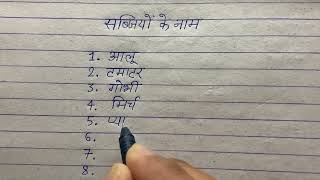 सब्जियों के नाम
1. आलू
2. टमाटर
3. गोभी
4. मिर्च
5. प्या
6.
7.
8.